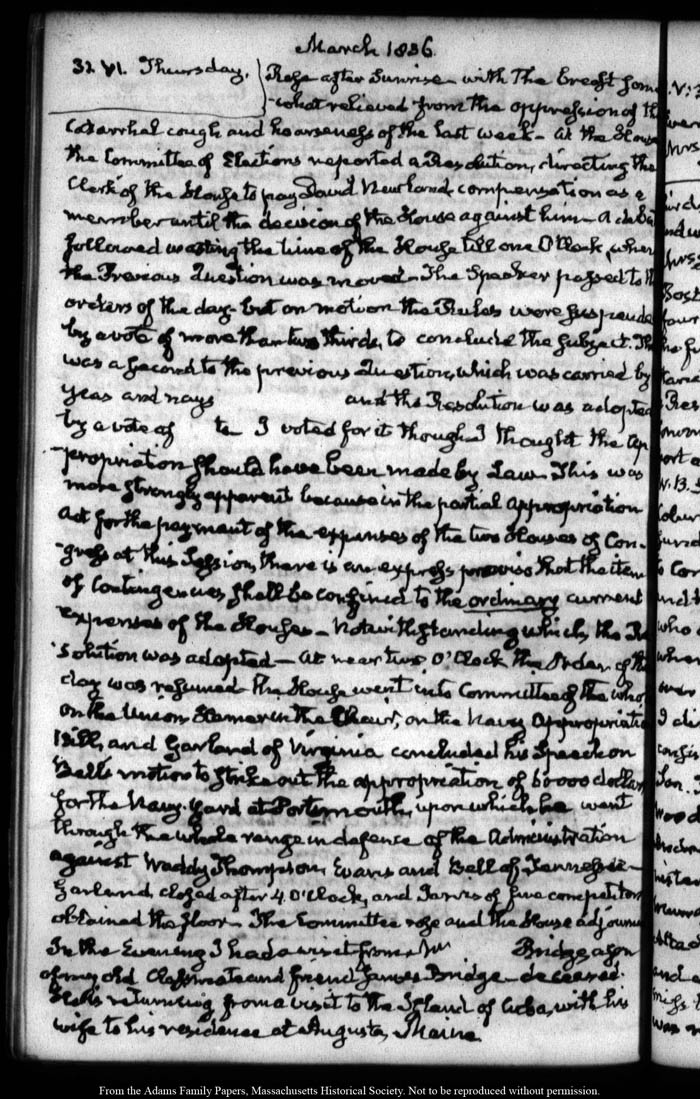 March 1836.
31. VI. Thursday. Rose after Sunrise with The Breast some
-what relieved from the oppression of the
Catarrhal cough and hoarseness of the last week — At the House
the Committee of Elections reported a Resolution, directing the
Clerk of the House to pay David Newland compensation as a
member until the decision of the House against him — A deba
followed wasting the time of the House till one O'Clock, when
the Previous Question was moved — The Speaker passed to th
orders of the day — but on motion the Rules were suspende
by a vote of more than two thirds, to conclude the subject. Th
was a second to the previous Question, which was carried by
yeas and nays and the Resolution was adopted
by a vote of to I voted for it though I thought the ap
-propriation should have been made by Law. This was
more strongly apparent because in the partial appropriation
Act for the payment of the expenses of the two Houses of Con-
-gress at this Session, there is an express proviso that the item
of Contingencies, shall be confined to the ordinary current
expenses of the Houses — Notwithstanding which, the Re
-solution was adopted — At near two O'Clock the Order of the
day was resumed the House went into Committee of the whol
on the Union Hamer in the Chair, on the Navy Appropriatio
Bill, and Garland of Virginia concluded his Speech on
Bell's motion to strike out the appropriation of 60000 dollars
for the Navy-Yard at Portsmouth, upon which he went
through the whole range in defence of the Administration
against Waddy Thompson, Evans and Bell of Tennessee —
Garland closed after 4 O'Clock, and Jarvis of five competitors
obtained the floor — The Committee rose and the House adjourn
In the Evening I had a visit from Mr Bridge a son
of my old Classmate and friend James Bridge — deceased.
He is returning from a visit to the Island of Cuba, with his
wife to his residence at Augusta, Maine
From the Adams Family Papers, Massachusetts Historical Society. Not to be reproduced without permission.